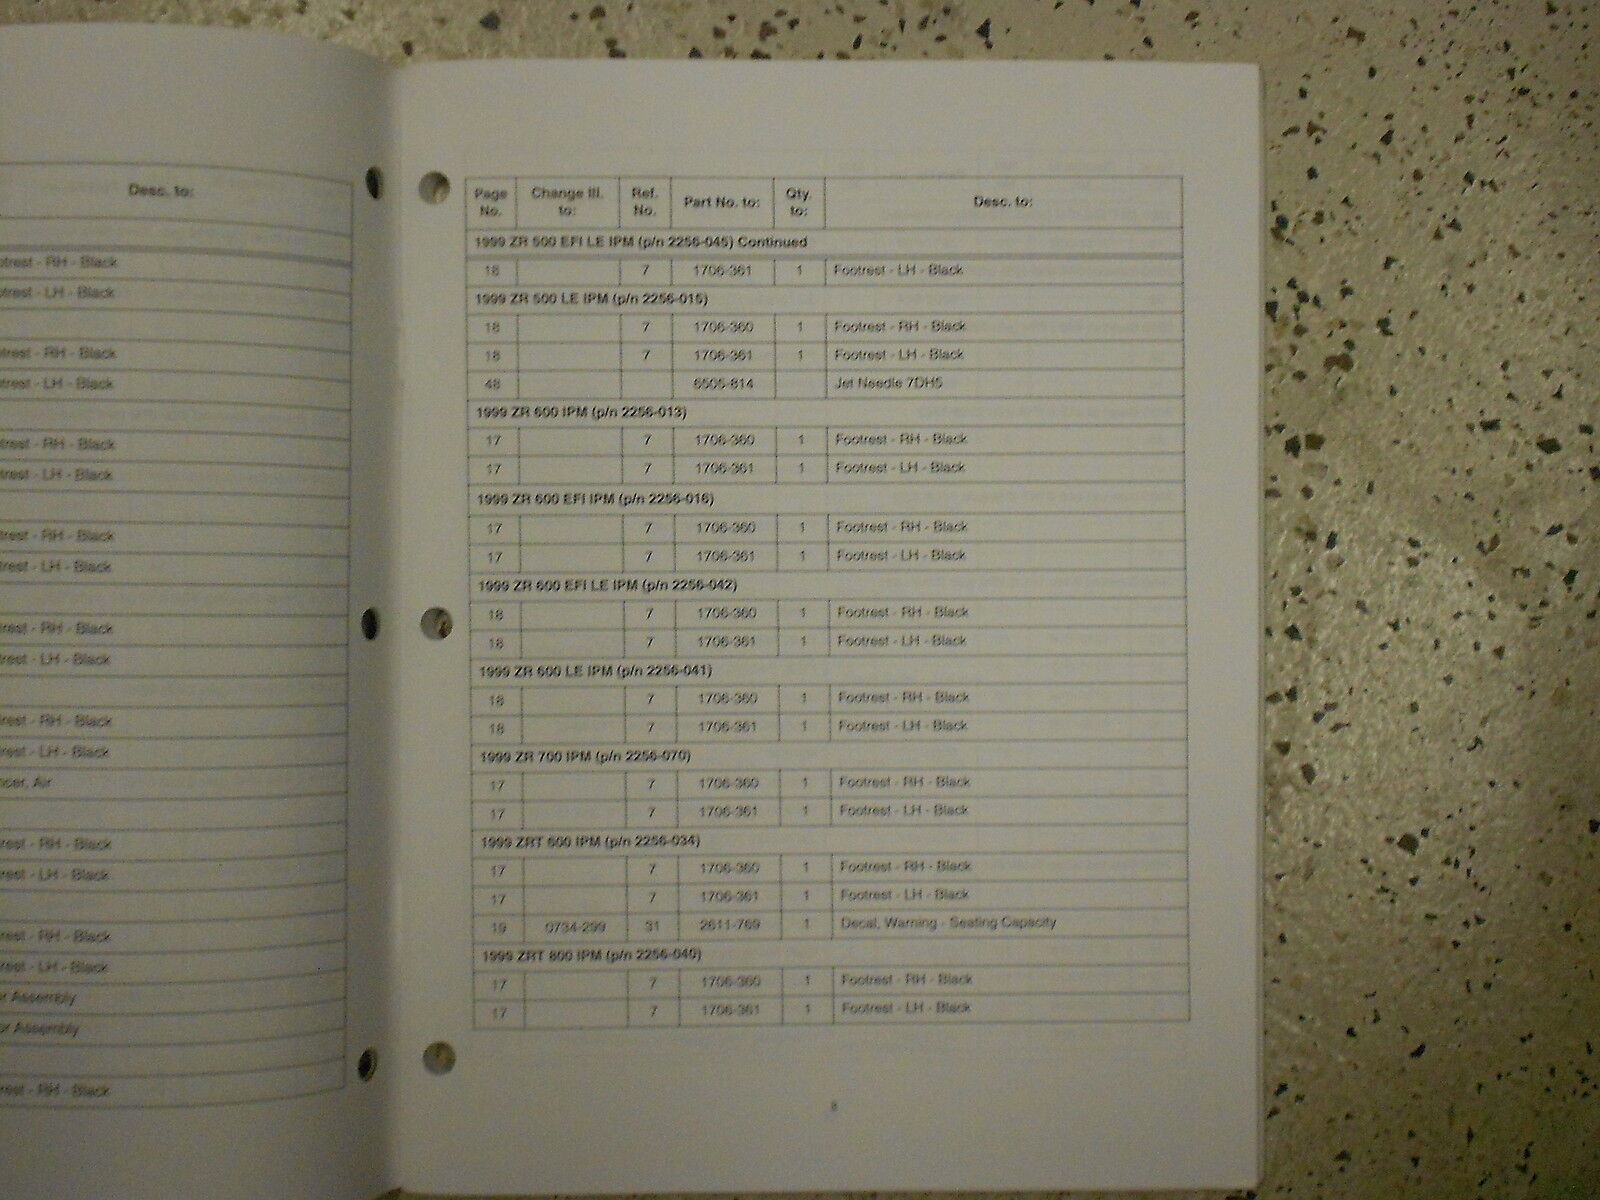 Desc. to:
- RH - Black
- LH - Black
- RH - Black
- LH - Black
- RH - Black
- LH - Black
- RH - Black
- LH - Black
- RH - Black
- LH - Black
- RH - Black
- LH - Black
Air
- RH - Black
- LH - Black
- RH - Black
- LH - Black
Assembly
Assembly
- RH - Black
Page No. Change Ill. to: Ref. No. Part No. to: Qty. to: Desc. to:
1999 ZR 500 EFI LE IPM (p/n 2256-045) Continued
18 7 1706-361 1 Footrest - LH - Black
1999 ZR 500 LE IPM (p/n 2256-015)
18 7 1706-360 1 Footrest - RH - Black
18 7 1706-361 1 Footrest - LH - Black
48 6505-814 Jet Needle 7DH5
1999 ZR 600 IPM (p/n 2256-013)
17 7 1706-360 1 Footrest - RH - Black
17 7 1706-361 1 Footrest - LH - Black
1999 ZR 600 EFI IPM (p/n 2256-016)
17 7 1706-360 1 Footrest - RH - Black
17 7 1706-361 1 Footrest - LH - Black
1999 ZR 600 EFI LE IPM (p/n 2256-042)
18 7 1706-360 1 Footrest - RH - Black
18 7 1706-361 1 Footrest - LH - Black
1999 ZR 600 LE IPM (p/n 2256-041)
18 7 1706-360 1 Footrest - RH - Black
18 7 1706-361 1 Footrest - LH - Black
1999 ZR 700 IPM (p/n 2256-070)
17 7 1706-360 1 Footrest - RH - Black
17 7 1706-361 1 Footrest - LH - Black
1999 ZRT 600 IPM (p/n 2256-034)
17 7 1706-360 1 Footrest - RH - Black
17 7 1706-361 1 Footrest - LH - Black
19 0734-299 31 2611-769 1 Decal, Warning - Seating Capacity
1999 ZRT 800 IPM (p/n 2256-040)
17 7 1706-360 1 Footrest - RH - Black
17 7 1706-361 1 Footrest - LH - Black